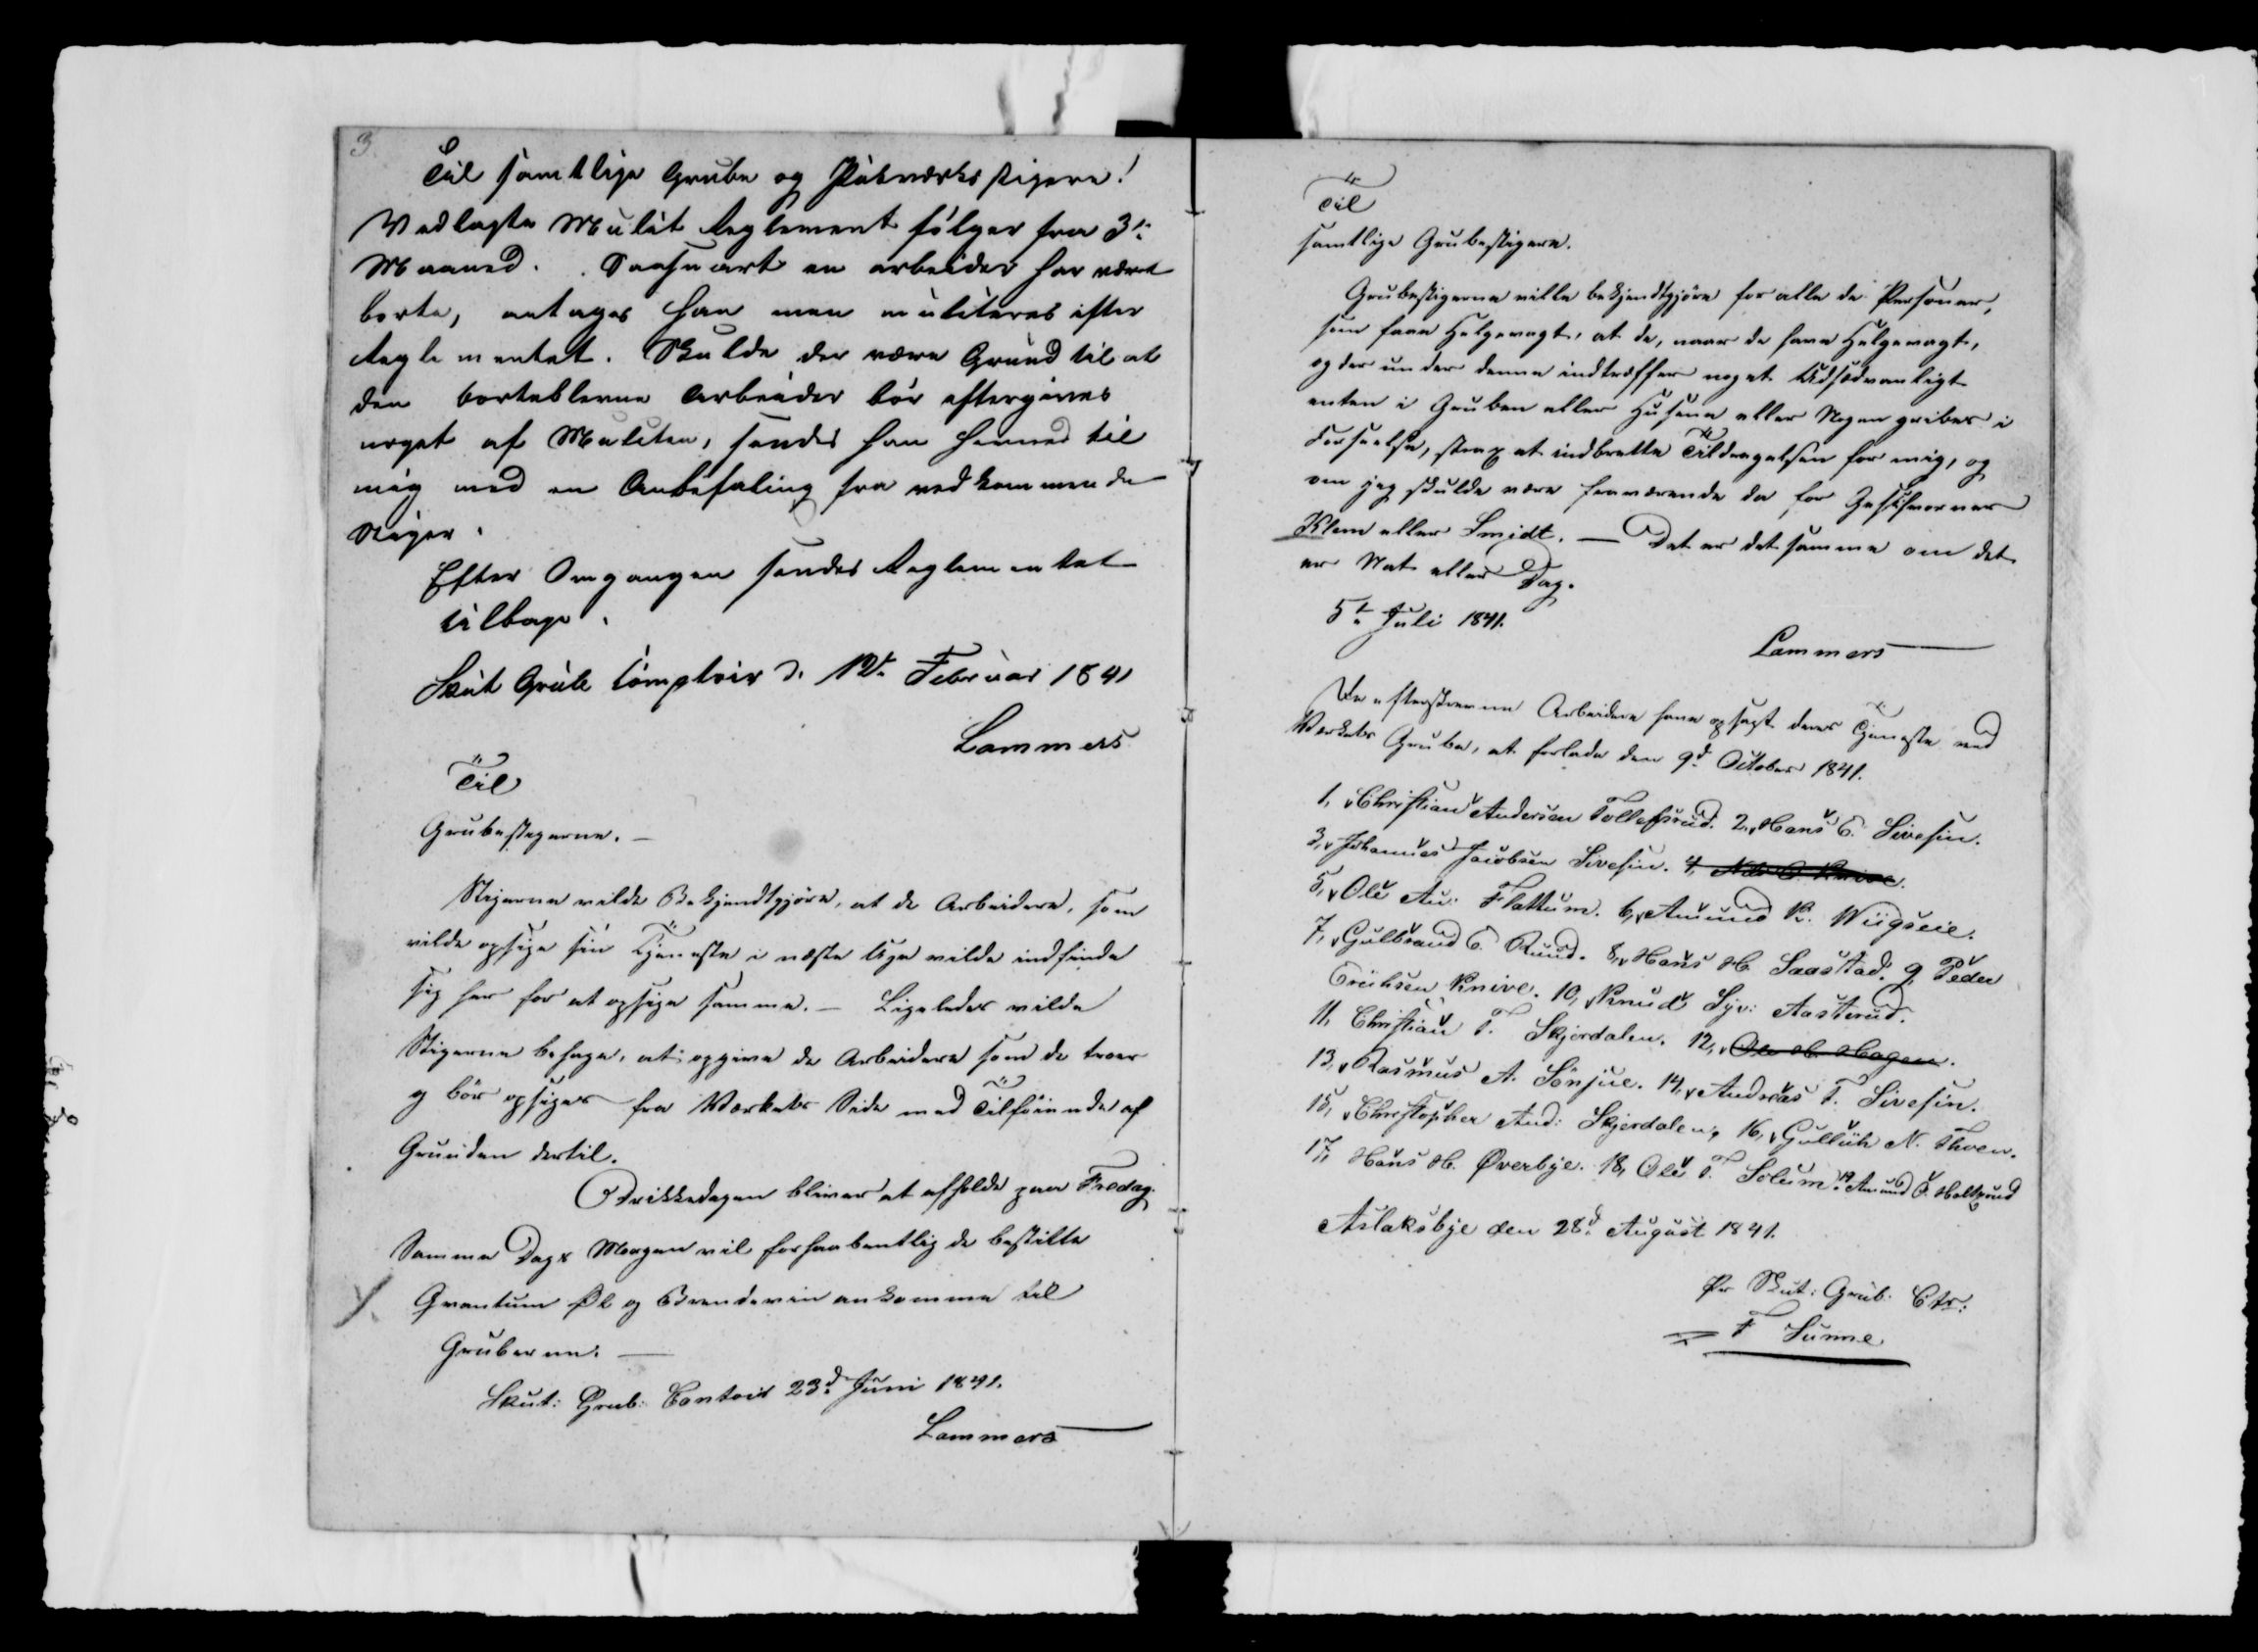 3
Til samtlige Grube og Pukværksstigere!
Vedlagte Mulct Reglement følger fra 3die
Maaned. Saasnart en arbeider har været
borte, antages han men mulcteres efter
Reglementet. Skulde der være Grund til at
den borteblevne Arbeider bör eftergives
noget af Mulcten, sendes han herned til
mig med en Anbefaling fra vedkommende
Stiger.
Efter Omgangen sendes Reglementet
tilbage.
Skut Grube Comptoir d. 12te Februar 1841
Lammers
Til
Grubestigerne. —
Stigerne vilde Bekjendtgjöre, at de Arbeidere, som
vilde opsige sin Tjeneste i næste Uge vilde indfinde
sig her for at opsige samme. — Ligeledes vilde
Stigerne behage, at opgive de Arbeidere som de troer
og bör opsiges fra Værkets Side med Tilföiende af
Grunden dertil.
Drikkedagen bliver at afholde paa Fredag.
Samme Dags Morgen vil forhaabentlig de bestilte
Qvantum Øl og Brendeviin ankomme til
Gruberne. —
Skut: Grub: Contoir 23d Juni 1841.
Lammers
Til
samtlige Grubestigere.
Grubestigerne ville bekjendtgjöre for alle de Personer,
som have Helgevagt, at de, naar de have Helgevagt,
og der under denne indtræffer noget Udsædvanligt
enten i Gruben eller Husene eller Nogen gribes i
Forseelse, strax at indberette Tildragelsen for mig, og
om jeg skulde være fraværende da for Geschworner
Klem eller Smidt. — Det er det samme om det
er Nat eller Dag.
5te Juli 1841.
Lammers
De efterskrevne Arbeidere have opsagt deres Tjeneste ved
Værkets Grube, at forlade den 9d October 1841.
1, Christian Andersen Tollefsrud. 2, Hans C. Sivesin.
3, Johannes Jacobsen Sivesin. 4, Nils O. Knive.
5, Ole An: Flattum. 6, Amund K. Wiigseie.
7, Gulbrand C. Ruud. 8, Hans H. Saastad. 9, Peder
Erichsen Knive. 10, Knud Syv: Aasterud.
11, Christian T. Skjerdalen. 12, Ole H. Hagen.
13, Rasmus A. Sönjue. 14, Andreas T. Sivesin.
15, Christopher And: Skjerdalen, 16, Gullich N. Thoen.
17, Hans H. Øverbye. 18, Ole T. Solum. 19. Amund O. Holtsrud
Aslaksbye den 28d August 1841.
Pr Skut: Grub: Ctr:
F Sunne